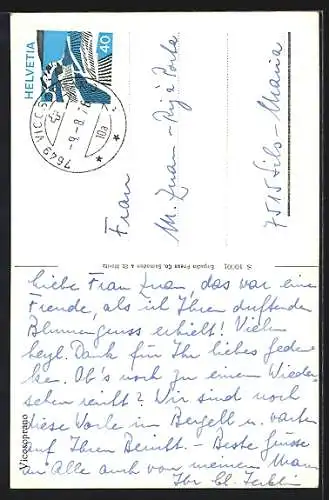 HELVETIA
40
7649 VICOS
-9.-8.76
10a
Frau
M. Zuan-
7515 Sils-Maria
S 10091
Engadin Press Co. Samaden & St. Moritz
Vicosoprano
Liebe Frau Zuan, das war eine
Freude, als ich Ihren duftenden
Blumengruss erhielt! Vielen
herzl. Dank für Ihr liebes Geden-
ken. Ob's noch zu einem Wieder-
sehen reicht? Wir sind noch
diese Woche im Bergell u. warten
auf Ihren Bericht. - Beste Grüsse
an Alle auch von meinem Mann
Ihr